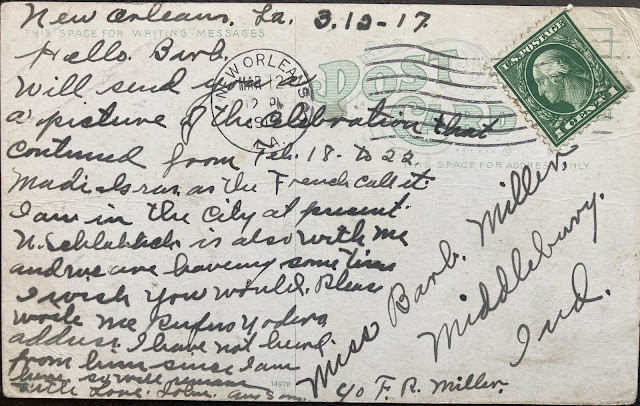 New Orleans, La. 3.12-17.
THIS SPACE FOR WRITING MESSAGES
Hello. Barb.
Will send you
a picture of the Celebration that
contined from Feb. 18. to 22
Madi Gras. as the French call it.
I am in the city at present.
N. Schlabach is also with me
and we are haveing some time
I wish you would. Please
write me Rufus Yoders
address. I have not heard
from him since I am
here so will remain
with Love. John. Ans Soon.
NEW ORLEANS
MAR 12
12 PM
LA
POST
CARD
THIS SPACE FOR ADDRESS ONLY
U.S. POSTAGE
1 CENT 1
Miss Barb. Miller.
Middlebury.
Ind.
c/o F. R. Miller.
14978